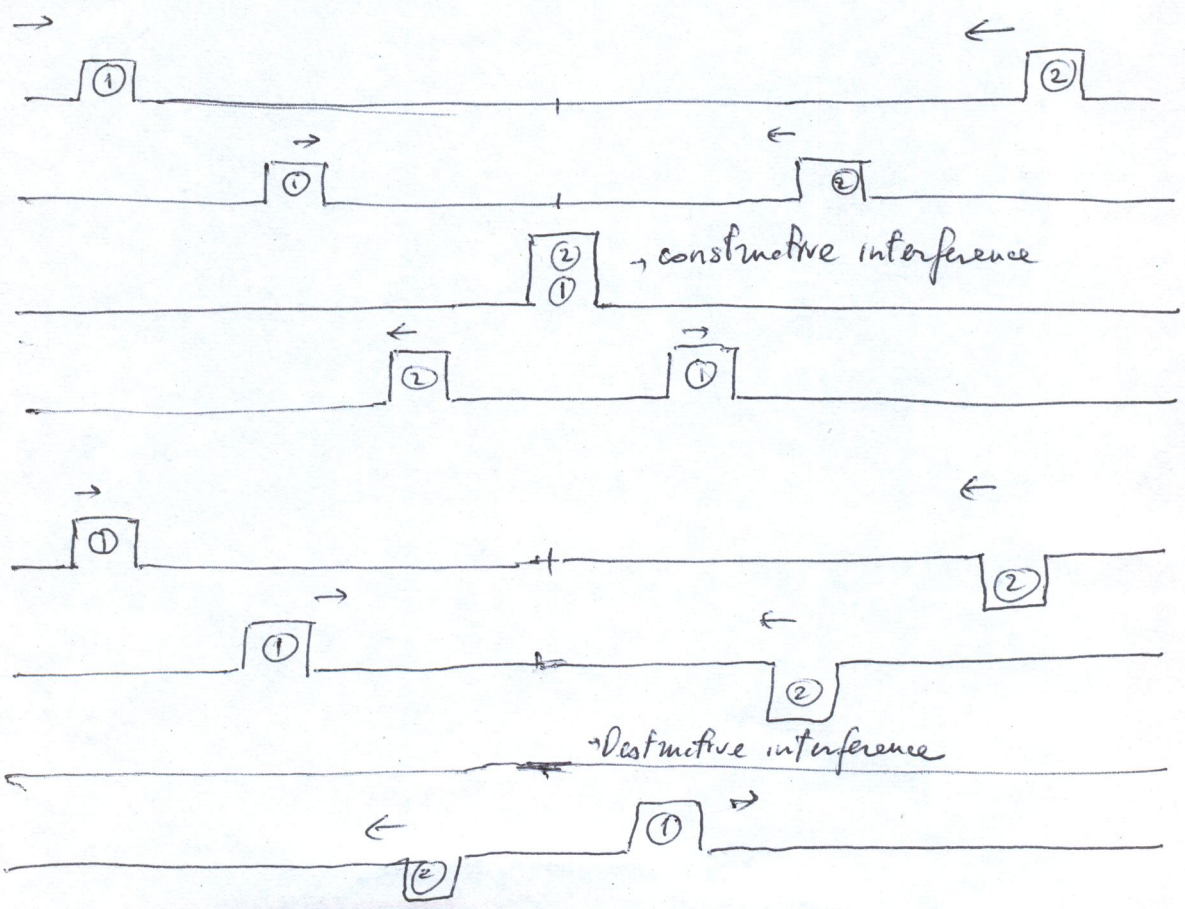 →
① ← ②
① → ← ②
②
① → constructive interference
← ② → ①
→ ① ← ②
① → ← ②
→ Destructive interference
← ② ① →